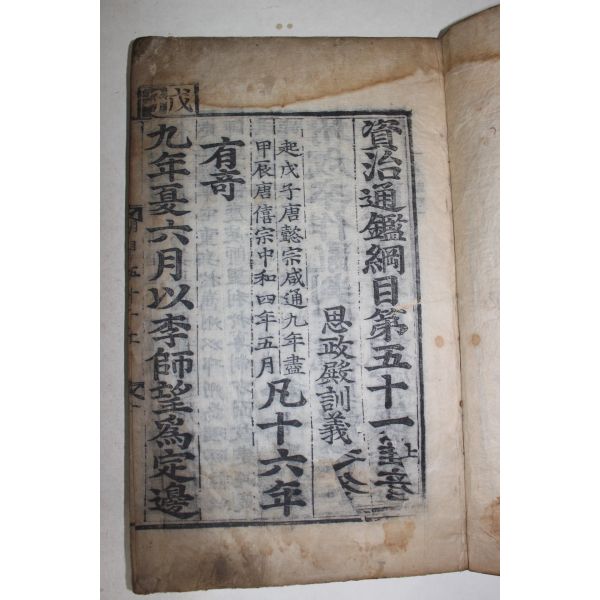 資治通鑑綱目第五十一上
思政殿訓義
起戊子唐懿宗咸通九年盡
甲辰唐僖宗中和四年五月
凡十六年
有奇
戊子
九年夏六月以李師望爲定邊